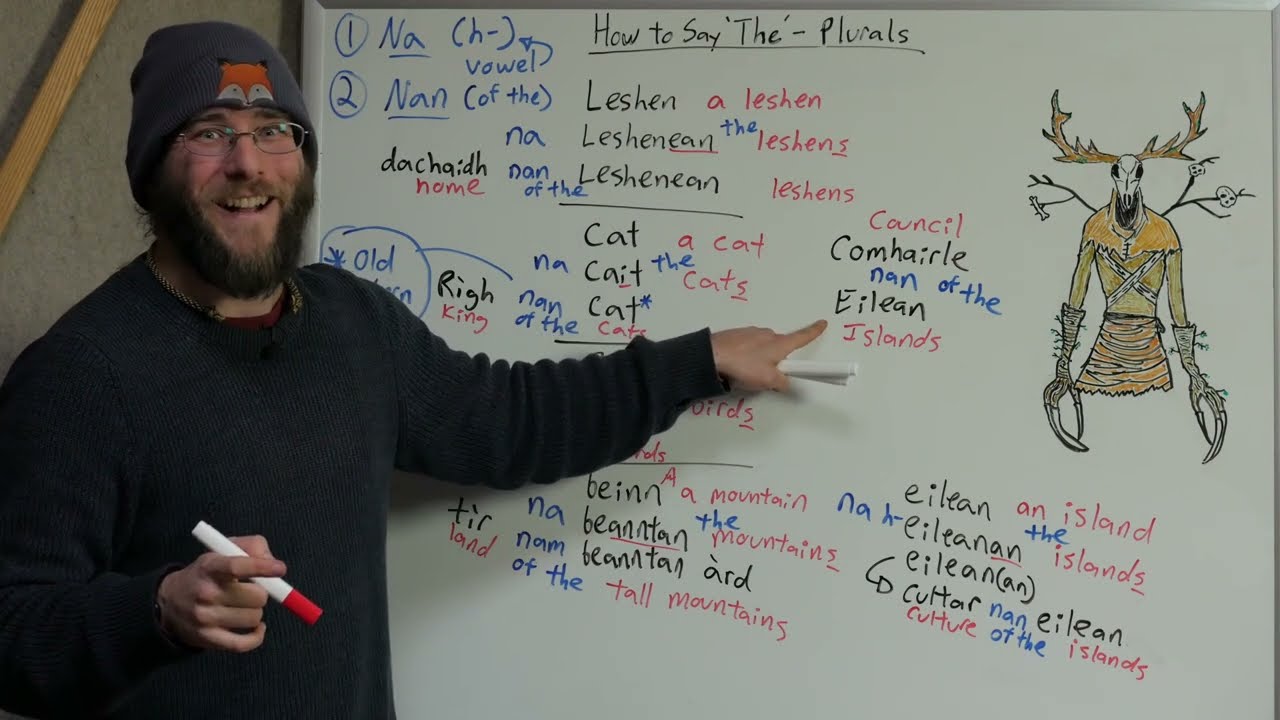 How to Say 'The' - Plurals
① Na (h-)
vowel
② Nan (of the)
Leshen a leshen
na Leshenean the leshens
dachaidh nan Leshenean
home of the leshens
Cat a cat
na Cait the cats
* Old
Righ nan Cat*
King of the cats
Council
Comhairle
nan of the
Eilean
Islands
birds
beinn A a mountain
na beanntan the mountains
tìr nam beanntan àrd
land of the tall mountains
eilean an island
na h-eileanan the islands
eilean(an)
cultar nan eilean
culture of the islands